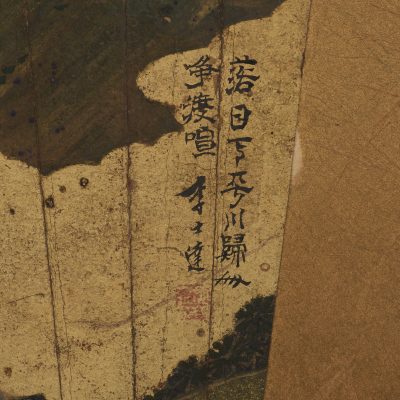 落日下平川歸舟
爭渡喧 李士達